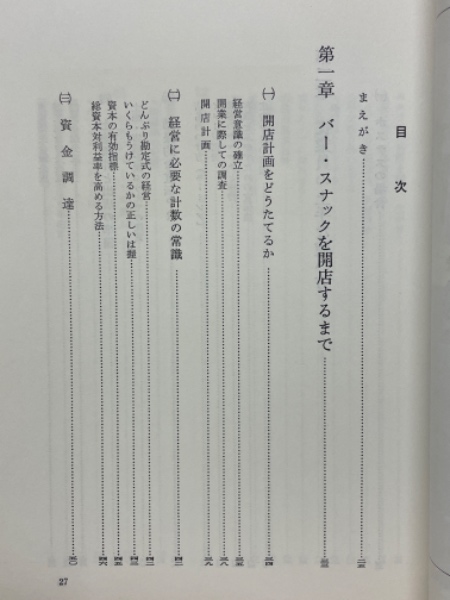 目次
まえがき
第一章 バー・スナックを開店するまで
㈠ 開店計画をどうたてるか
経営意識の確立
開業に際しての調査
開店計画
㈡ 経営に必要な計数の常識
どんぶり勘定式の経営
いくらもうけているかの正しいは握
資本の有効指標
総資本対利益率を高める方法
㈢ 資金調達
27